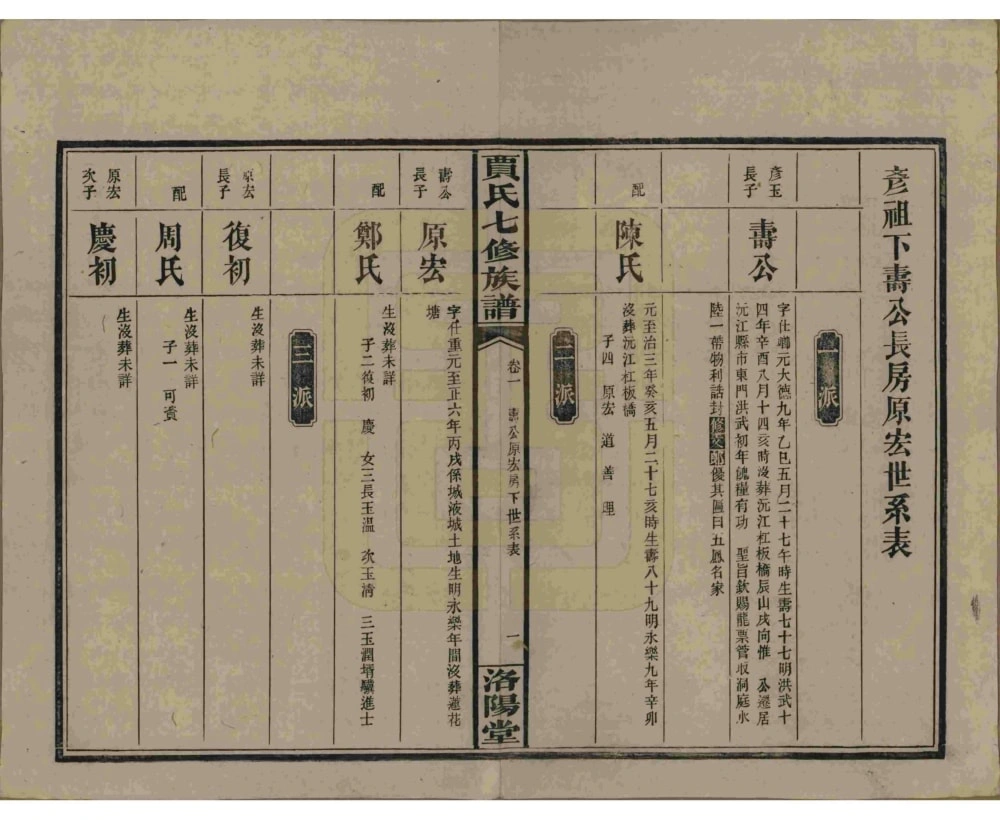 彥祖下壽公長房原宏世系表
一派
彥玉
長子
壽公
字仕聯元大德九年乙巳五月二十七午時生壽七十七明洪武十
四年辛酉八月十四亥時沒葬沅江杠板橋辰山戌向惟 公遷居
沅江縣市東門洪武初年餽糧有功 聖旨欽賜龍票管收洞庭水
陸一帶物利誥封修 郎優其匾曰五鳳名家
配
陳氏
元至治三年癸亥五月二十七亥時生壽八十九明永樂九年辛卯
沒葬沅江杠板橋
子四 原宏 道 善 理
二派
賈氏七修族譜
卷一
壽公原宏房下世系表
一
洛陽堂
壽公
長子
原宏
字仕重元至正六年丙戌係城液城土地生明永樂年間沒葬蓮花
塘
配
鄭氏
生沒葬未詳
子二復初 慶 女三長玉溫 次玉清 三玉潤壻驥進士
三派
原宏
長子
復初
生沒葬未詳
配
周氏
生沒葬未詳
子一 可貴
原宏
次子
慶初
生沒葬未詳